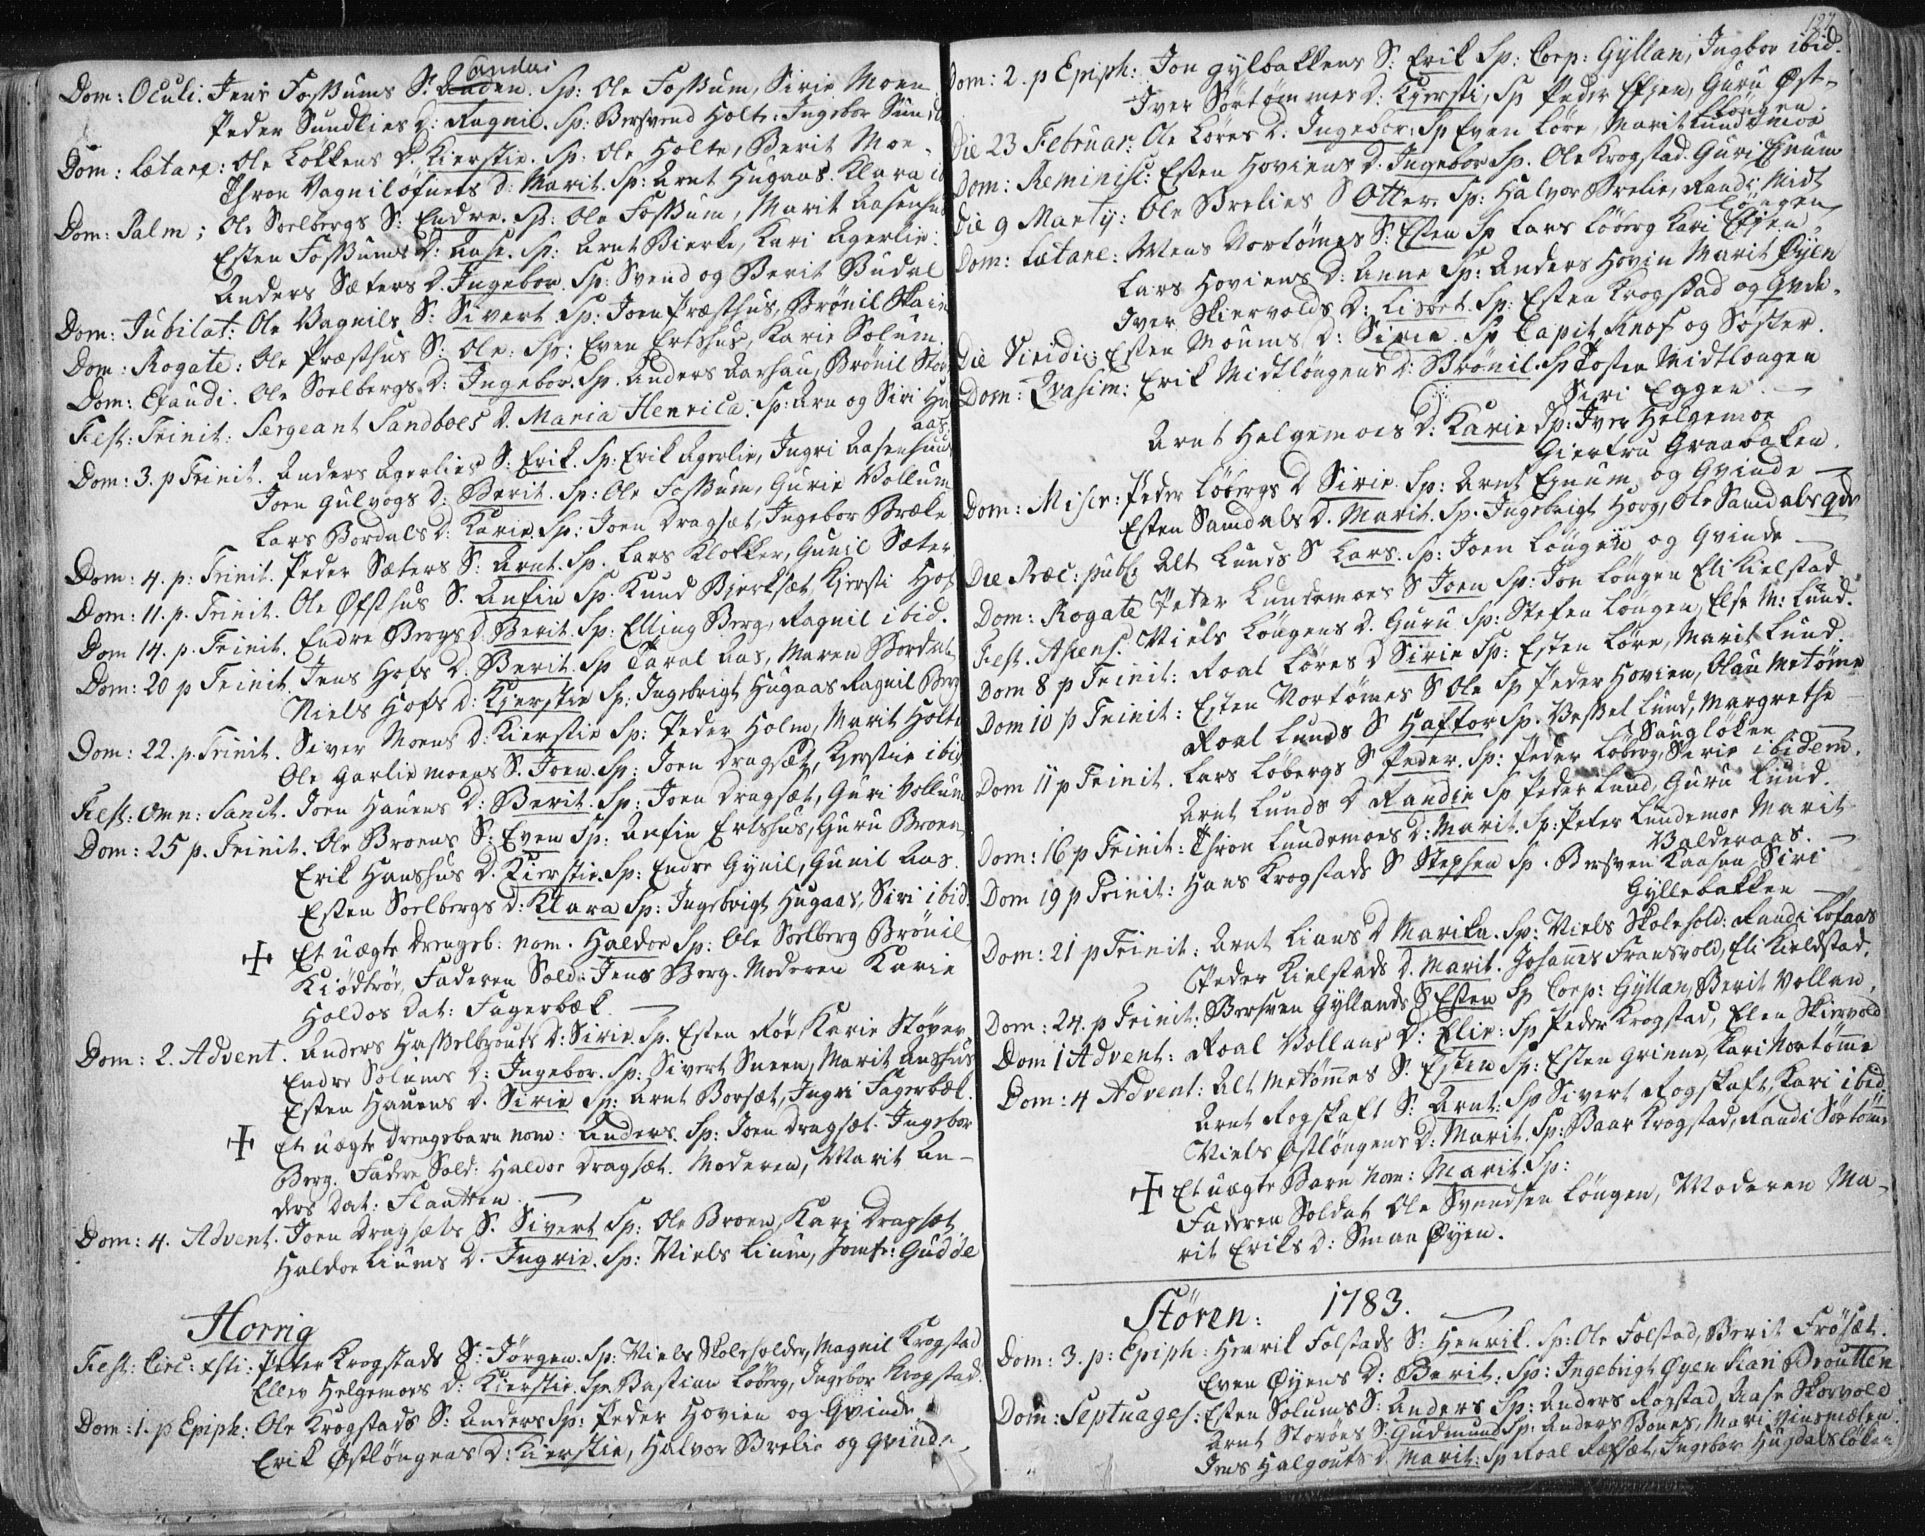 Dom: Oculi. Jens Fossums S: Anders. Sp: Ole Fossum, Sirie Moen
Peder Sundlies D: Ragnil. Sp: Bersvend Holte: Ingebor
Dom: Lætare: Ole Løkkens D. Kierstie. Sp: Ole Holte, Berit Moe.
Thron Vagniløfnets D: Marit. Sp: Arnt Hugaas. Klara
Dom: Palm; Ole Soelbergs S: Endre. Sp: Ole Fossum, Marit Aasenhus
Esten Fossums D: Aase. Sp: Arnt Bierke, Kari Agerlie.
Anders Sæters D. Ingebor. Sp: Svend og Berit Budal
Dom: Jubilat: Ole Vagnils S: Sivert. Sp: Joen Præsthus, Brønil
Dom: Rogate: Ole Præsthus S: Ole: Sp: Even Ertshus, Karie Solum.
Dom: Exaudi. Ole Soelbergs D: Ingebor. Sp. Anders Aarhau, Brønil
Fest: Trinit: Sergeant Sandboes D. Maria Henrica. Sp: Arn og Siri Hu
aas.
Dom: 3. p Trinit. Anders Agerlies S: Erik. Sp: Erik Agerlie, Ingri Aasenhuus
Joen Gulvogs D: Berit. Sp: Ole Fossum, Gurie Vollum
Lars Bordals D: Karie. Sp: Joen Dragsæt, Ingebor Bræke
Dom: 4. p: Trinit. Peder Sæters S: Arnt. Sp. Lars Klokker, Gunil Sæter.
Dom: 11. p. Trinit. Ole Øfsthus S. Anfin Sp. Knud Bjerksæt, Kjersti Hof
Dom 14. p. Trinit. Endre Bergs D. Berit. Sp: Elling Berg, Ragnil ibid.
Dom: 20 p Trinit. Jens Hofs D: Berit. Sp Taral Aas, Maren Bordal
Niels Hofs D: Kjerstie Sp: Ingebrigt Hugaas Ragnil Berg
Dom: 22. p. Trinit. Siver Moens D: Kierstie Sp: Peder Holm, Marit Holte
Ole Garliemoens S. Joen. Sp: Joen Dragsæt, Kjerstie ibid
Fest: Omn: Sanct. Joen Hauens D: Berit. Sp: Joen Dragsæt, Guri Vollum
Dom: 25 p. Trinit. Ole Broens S: Even Sp: Anfin Ertshus, Guru Broen
Erik Hanshus D. Kierstie. Sp: Endre Gynil, Gunil Aas.
Esten Soelbergs D: Klara Sp: Ingebrigt Hugaas, Siri ibid.
Et uægte Drengeb: nom. Haldoe Sp: Ole Soelberg Brønil
Kiødtrøe, Faderen Sold: Jens Berg. Moderen Karie
Holdos Dat: Fagerbæk.
Dom: 2. Advent. Anders Hasselbrouts D: Sirie. Sp. Esten Røe, Karie Støpen
Endre Solums D: Ingebor. Sp: Sivert Sneen, Marit Aashus
Esten Hauens D. Sirie Sp: Arnt Borsæt, Ingri Fagerbæk.
Et uægte Drengebarn nom: Anders. Sp: Joen Dragsæt. Ingebor
Berg. Fadere Sold: Haldoe Dragsæt. Moderen, Marit An-
ders Dat: Flaatten.
Dom: 4. Advent. Joen Dragsæts S. Sivert Sp: Ole Broen, Kari Dragsæt
Haldoe Liums D. Ingrie. Sp: Niels Lium, Jomfr: Gudde
Horrig
Fest: Circ: Xsti: Peter Krogstads S: Jørgen. Sp: Niels Skoleholder, Magnil Krogstad
Ellev Helgemoes D: Kierstie. Sp. Bastian Løberg, Ingebor Krogstad.
Dom: 1. p Epiph: Ole Krogstads S: Anders Sp: Peder Hovien og Qvinde.
Erik Østlöngens D: Kierstie, Halvor Brelie og Qvinde.
127
Dom: 2. p Epiph: Jon Gylbakkens S: Erik Sp: Corp: Gyllan, Ingbor ibid.
Iver Sørtømmes D: Kjersti, Sp Peder Efjen, Guru Øst-
löngen.
Die 23 Februar: Ole Løres D. Ingebor: Sp Even Løre, Marit Lundemoe
Dom: Reminisc: Esten Hoviens D. Ingebor Sp. Ole Krogstad. Guri Enum
Die 9 Martij: Ole Brelies S Otter. Sp: Halvor Brelie, Randi Midt
löngen
Dom: Lætare: Mens Nortømes S: Esten Sp Lars Løberg Kari Efjen.
Lars Hoviens D: Anne Sp: Anders Hovin Marit Øyen
Iver Skiervolds D: Lisbet. Sp: Esten Krogstad og Qvde.
Die Viridi: Esten Moums D: Sirie. Sp Capit Knof og Søster.
Dom: Qvasim: Erik Midtlöngens D: Brønil. Sp Posten Midtlongen
Siri Eggen.
Arnt Helgemoes D: Karie Sp: Iver Helgemoe
Giertru Graabaken.
Dom: Miser: Peder Løbergs D Sirie. Sp: Arnt Enum og Qvinde
Esten Samdals D. Marit. Sp. Ingebrigt Horg, Ole Samdals qde
Die Præc: publ: Alt Lunds S Lars. Sp: Joen Löngen og Qvinde
Dom: Rogate Peter Lundemoes S Joen Sp: Jon Löngen Eli Kielstad
Fest. Ascens. Niels Löngens D. Guru Sp: Stefen Löngen, Else M: Lund.
Dom 8 p Trinit: Roal Løres D Sirie Sp: Esten Løre, Marit Lund.
Dom 10 p Trinit: Esten Nortømes S Ole Sp Peder Hovien, Olau Metømme
Roal Lunds S Haftor Sp. Vessel Lund, Margrethe
Saugløken
Dom 11 p Trinit. Lars Løbergs S Peder. Sp: Peder Løberg, Sirie ibidem.
Arnt Lunds D Randie Sp Peder Lund, Guru Lund.
Dom: 16 p Trinit: Thron Lundemoes D: Marit. Sp: Peter Lundemoe Marit
Valderaas.
Dom 19 p Trinit: Hans Krogstads S Stephen Sp. Bersven Kaasen Siri
Gyllebakken
Dom: 21 p Trinit: Arnt Lians D Marika. Sp: Niels Skolehold: Randi Lofaas
Peder Kielstads D. Marit. Johannes Fransvold, Eli Kieldstad.
Dom: 24. p Trinit: Bersven Gyllands S Esten Sp Corp: Gyllan, Berit Vollan.
Dom 1 Advent: Roal Vollans D: Elie: Sp Peder Krogstad, Elen Skiervold
Dom: 4 Advent: Alt Metømmes S: Esten Sp: Esten Grinne, Kari Nortømme
Arnt Rogskaft S: Arnt: Sp Sivert Rogskaft, Kari ibid.
Niels Østlöngens D: Marit. Sp: Baar Krogstad, Randi Sørtømme
Et uægte Barn nom: Marit. Sp:
Faderen Soldat Ole Svendsen Löngen, Moderen Ma-
rit Eriks D: Smaa Øyen.
Støren: 1783.
Dom: 3. p: Epiph: Henrik Folstads S: Henrik. Sp: Ole Folstad, Berit Frøsæt.
Even Øyens D: Berit. Sp: Ingebrigt Øyen Kari Broutten
Dom: Septuages: Esten Solums S: Anders Sp: Anders Rogstad Aase Skorvold
Arnt Storøes S: Gudmund Sp: Anders Bones, Mari Vinsmælen.
Jens Halgouts D. Marit: Sp Roal Ræssæt, Ingebor Hugdalsløken